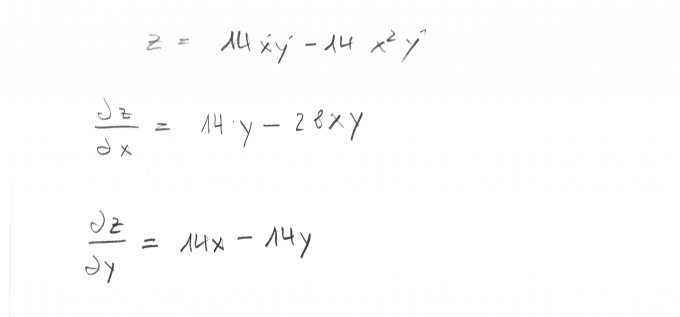 z = 14xy - 14 x² y
∂z/∂x = 14·y - 28xy
∂z/∂y = 14x - 14y